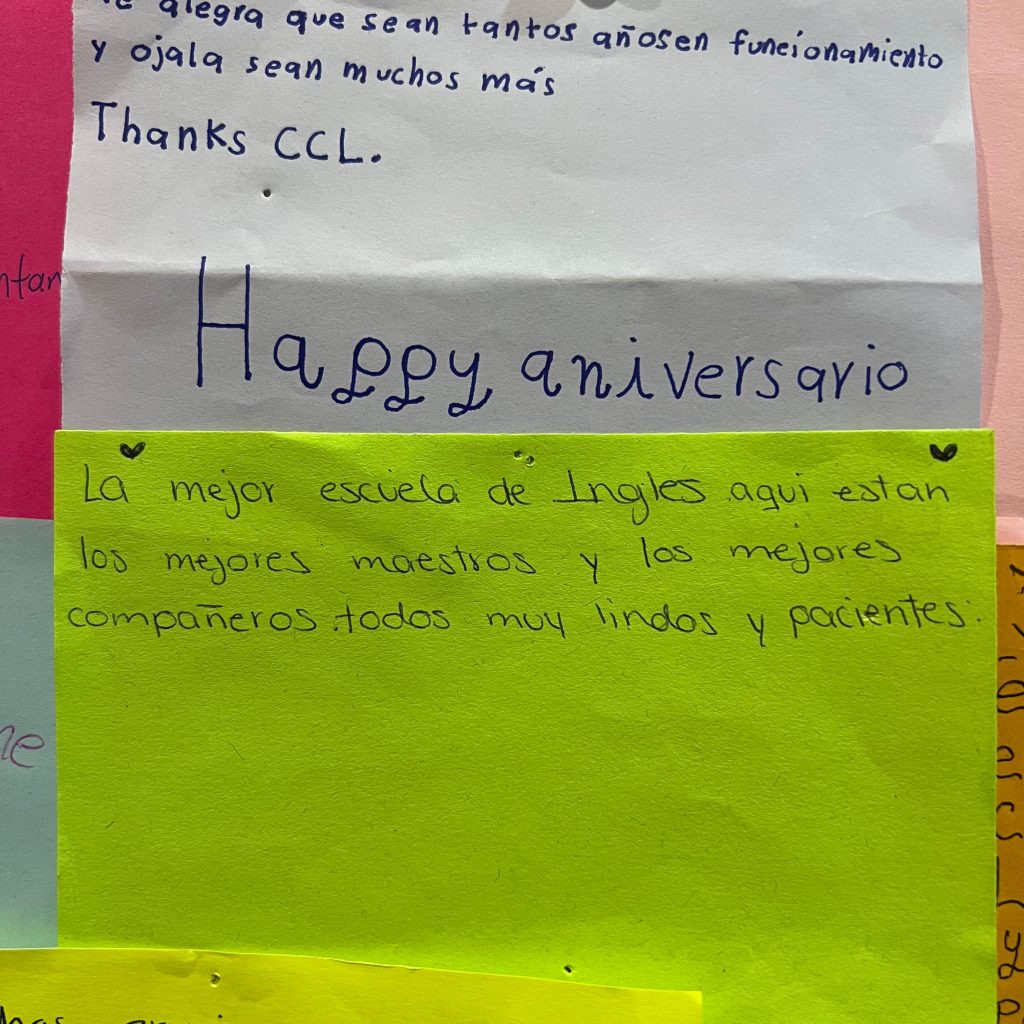 alegra que sean tantos añosen funcionamiento
y ojala sean muchos más
Thanks CCL.
Happy aniversario
La mejor escuela de Ingles aqui estan
los mejores maestros y los mejores
compañeros todos muy lindos y pacientes.